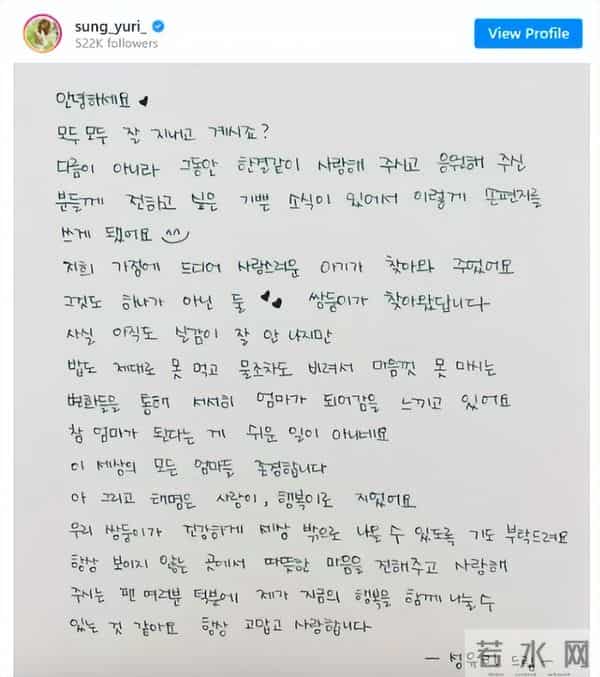 sung_yuri_
522K followers
View Profile
안녕하세요 ♥
모두모두 잘 지내고 계시죠?
다름이 아니라 그동안 한결같이 사랑해 주시고 응원해 주신
분들께 전하고 싶은 기쁜 소식이 있어서 이렇게 손편지를
쓰게 됐어요 ^^
저희 가정에 드디어 사랑스러운 아기가 찾아와 주었어요
그것도 하나가 아닌 둘 ♥♥ 쌍둥이가 찾아왔답니다
사실 아직도 실감이 잘 안 나지만
밥도 제대로 못 먹고 물조차도 비려서 마음껏 못 마시는
변화들을 통해 서서히 엄마가 되어감을 느끼고 있어요
참 엄마가 된다는 게 쉬운 일이 아니네요
이 세상의 모든 엄마들 존경합니다
아 그리고 태명은 사랑이, 행복이로 지었어요
우리 쌍둥이가 건강하게 세상 밖으로 나올 수 있도록 기도 부탁드려요
항상 보이지 않는 곳에서 따뜻한 마음을 전해주고 사랑해
주시는 팬 여러분 덕분에 제가 지금의 행복을 함께 나눌 수
있는 것 같아요 항상 고맙고 사랑합니다
- 성유리 드림 -
若水网